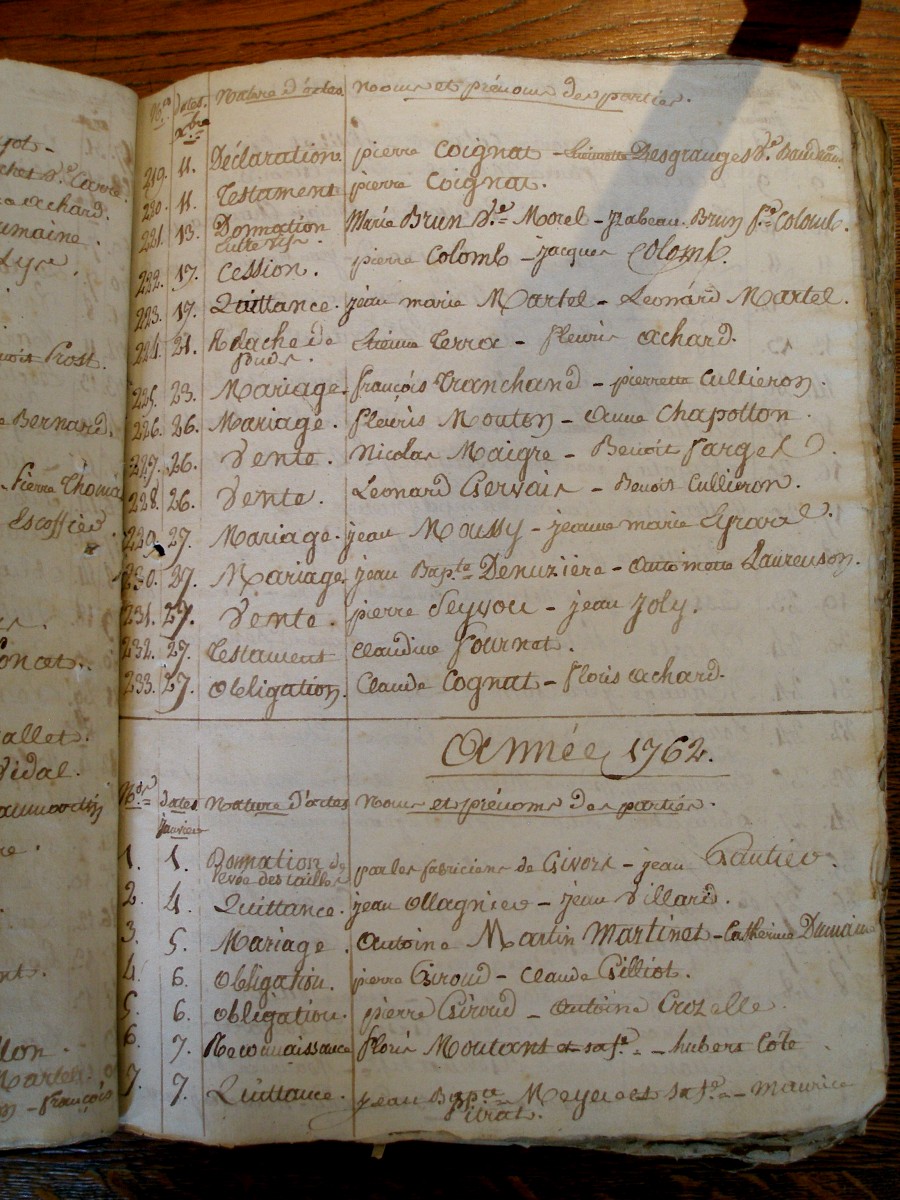 yot -
chet Vᵉ Carre
achard.
umaine.
Lyr.
Prost
Bernard.
Pierre Thoma
Escoffier
oncet.
allet.
Vidal.
re.
nt.
llon.
Martel
n - françois
N.os Dates. Nature d'actes Noms et prénoms des parties.
xbre
219. 11. Déclaration pierre Coignat - Desgranges
220. 11. Testament pierre Coignat.
221. 13. Donnation Marie Brun Vᵉ Morel - yzabeau Brun fᵉ Colomb.
entre vifs.
222. 17. Cession. pierre Colomb - jacques Colomb.
223. 17. Quittance. jean marie Martel - Leonard Martel.
224. 21. Relache de Etienne Terra - fleuris achard.
fonds.
225. 23. Mariage. françois Tranchand - pierrette Cullieron.
226. 26. Mariage. fleuris Mouton - Anne Chapotton
227. 26. Vente. Nicolas Maigre - Benoit farges
228. 26. Vente. Leonard Gervais - Benoit Cullieron.
229. 27. Mariage. jean Moussy - jeanne marie
230. 27. Mariage. jean Bap.te Denuziere - Antoinette Laurenson.
231. 27. Vente. pierre Seyvou - jean joly.
232. 27. Testament claudine fournat.
233. 27. Obligation. Claude Cognat - floris achard.
Année 1762.
N.os dates Nature d'actes Noms et prénoms des parties.
janvier
1. 1. Donnation de par les fabriciens de Givors - jean Gautier.
levée des tailles
2. 4. Quittance. jean ollagnier - jean Villard.
3. 5. Mariage. Antoine Martin Martinet - Catherine Dumain
4. 6. Obligation. pierre Giroud - Claude Gilliot.
5. 6. obligation. pierre Giroud - Antoine Crozelle.
6. 7. Reconnaissance floris Moutant et sa fᵉ - hubert Cote
7. 7. Quittance. jean Bap.te Meyer et sa fᵉ - Maurice
Pitrat.